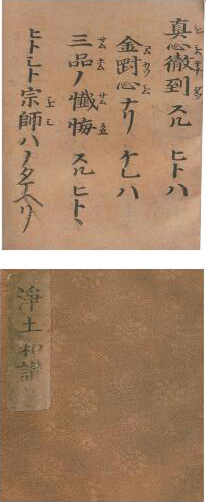 真心徹到スル ヒトハ
金剛心ナリ ケレハ
三品ノ懺悔 スルヒトヽ
ヒトシト宗師ハノタマヘリ
淨土和讃